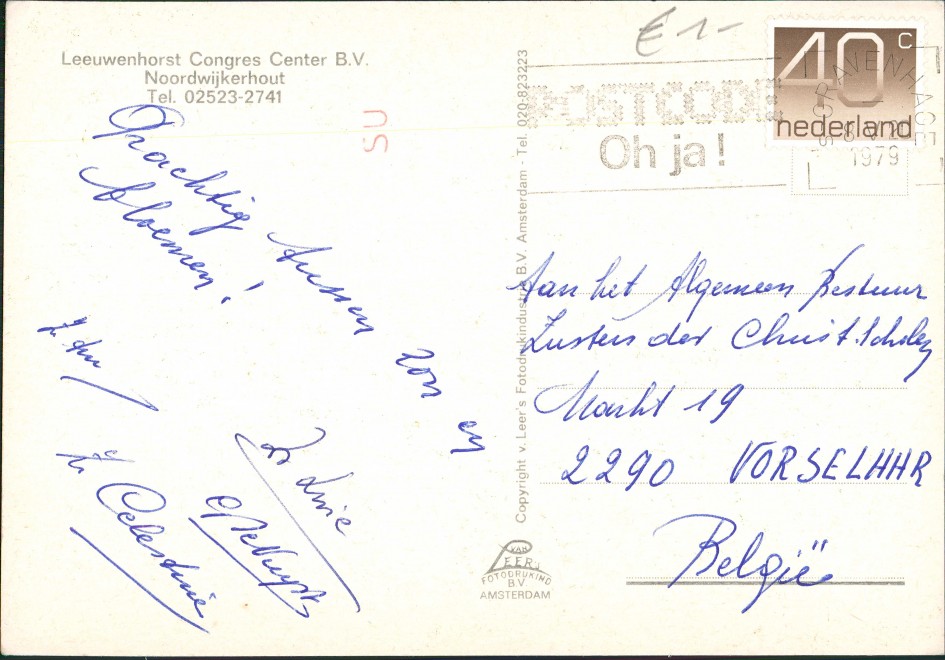 Leeuwenhorst Congres Center B.V.
Noordwijkerhout
Tel. 02523-2741
SU
€ 1-
40 c
nederland
POSTCODE
Oh ja!
'S GRAVENHAGE
1979
Prachtig tussen zon en
bloemen!
Zr
Zr Celestine
Zr Lucie
Copyright v. Leer's Fotodrukindustrie B.V. Amsterdam - Tel. 020-823223
Aan het Algemeen Bestuur
Zusters der Christ. Scholen
Markt 19
2290 VORSELAAR
België
VAN
LEER'S
FOTODRUKIND
B.V.
AMSTERDAM